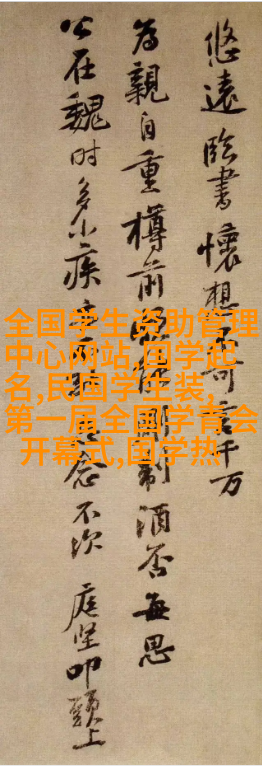 悠遠臨書懷想可言千万
為親自重樽前制酒否每思
公在魏时多小疾念不次 庭坚叩頭上
全国学生资助管理
中心网站,国学起
名,民国学生装,
第一届全国学青会
开幕式,国学热